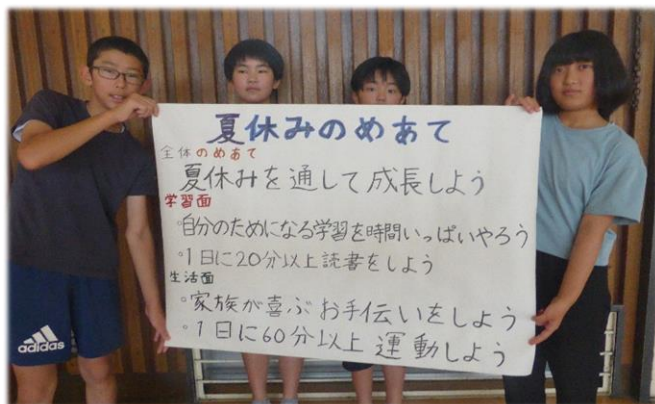 夏休みのめあて
全体のめあて
夏休みを通して成長しよう
学習面
°自分のためになる学習を時間いっぱいやろう
°1日に20分以上読書をしよう
生活面
°家族が喜ぶお手伝いをしよう
°1日に60分以上運動しよう
adidas